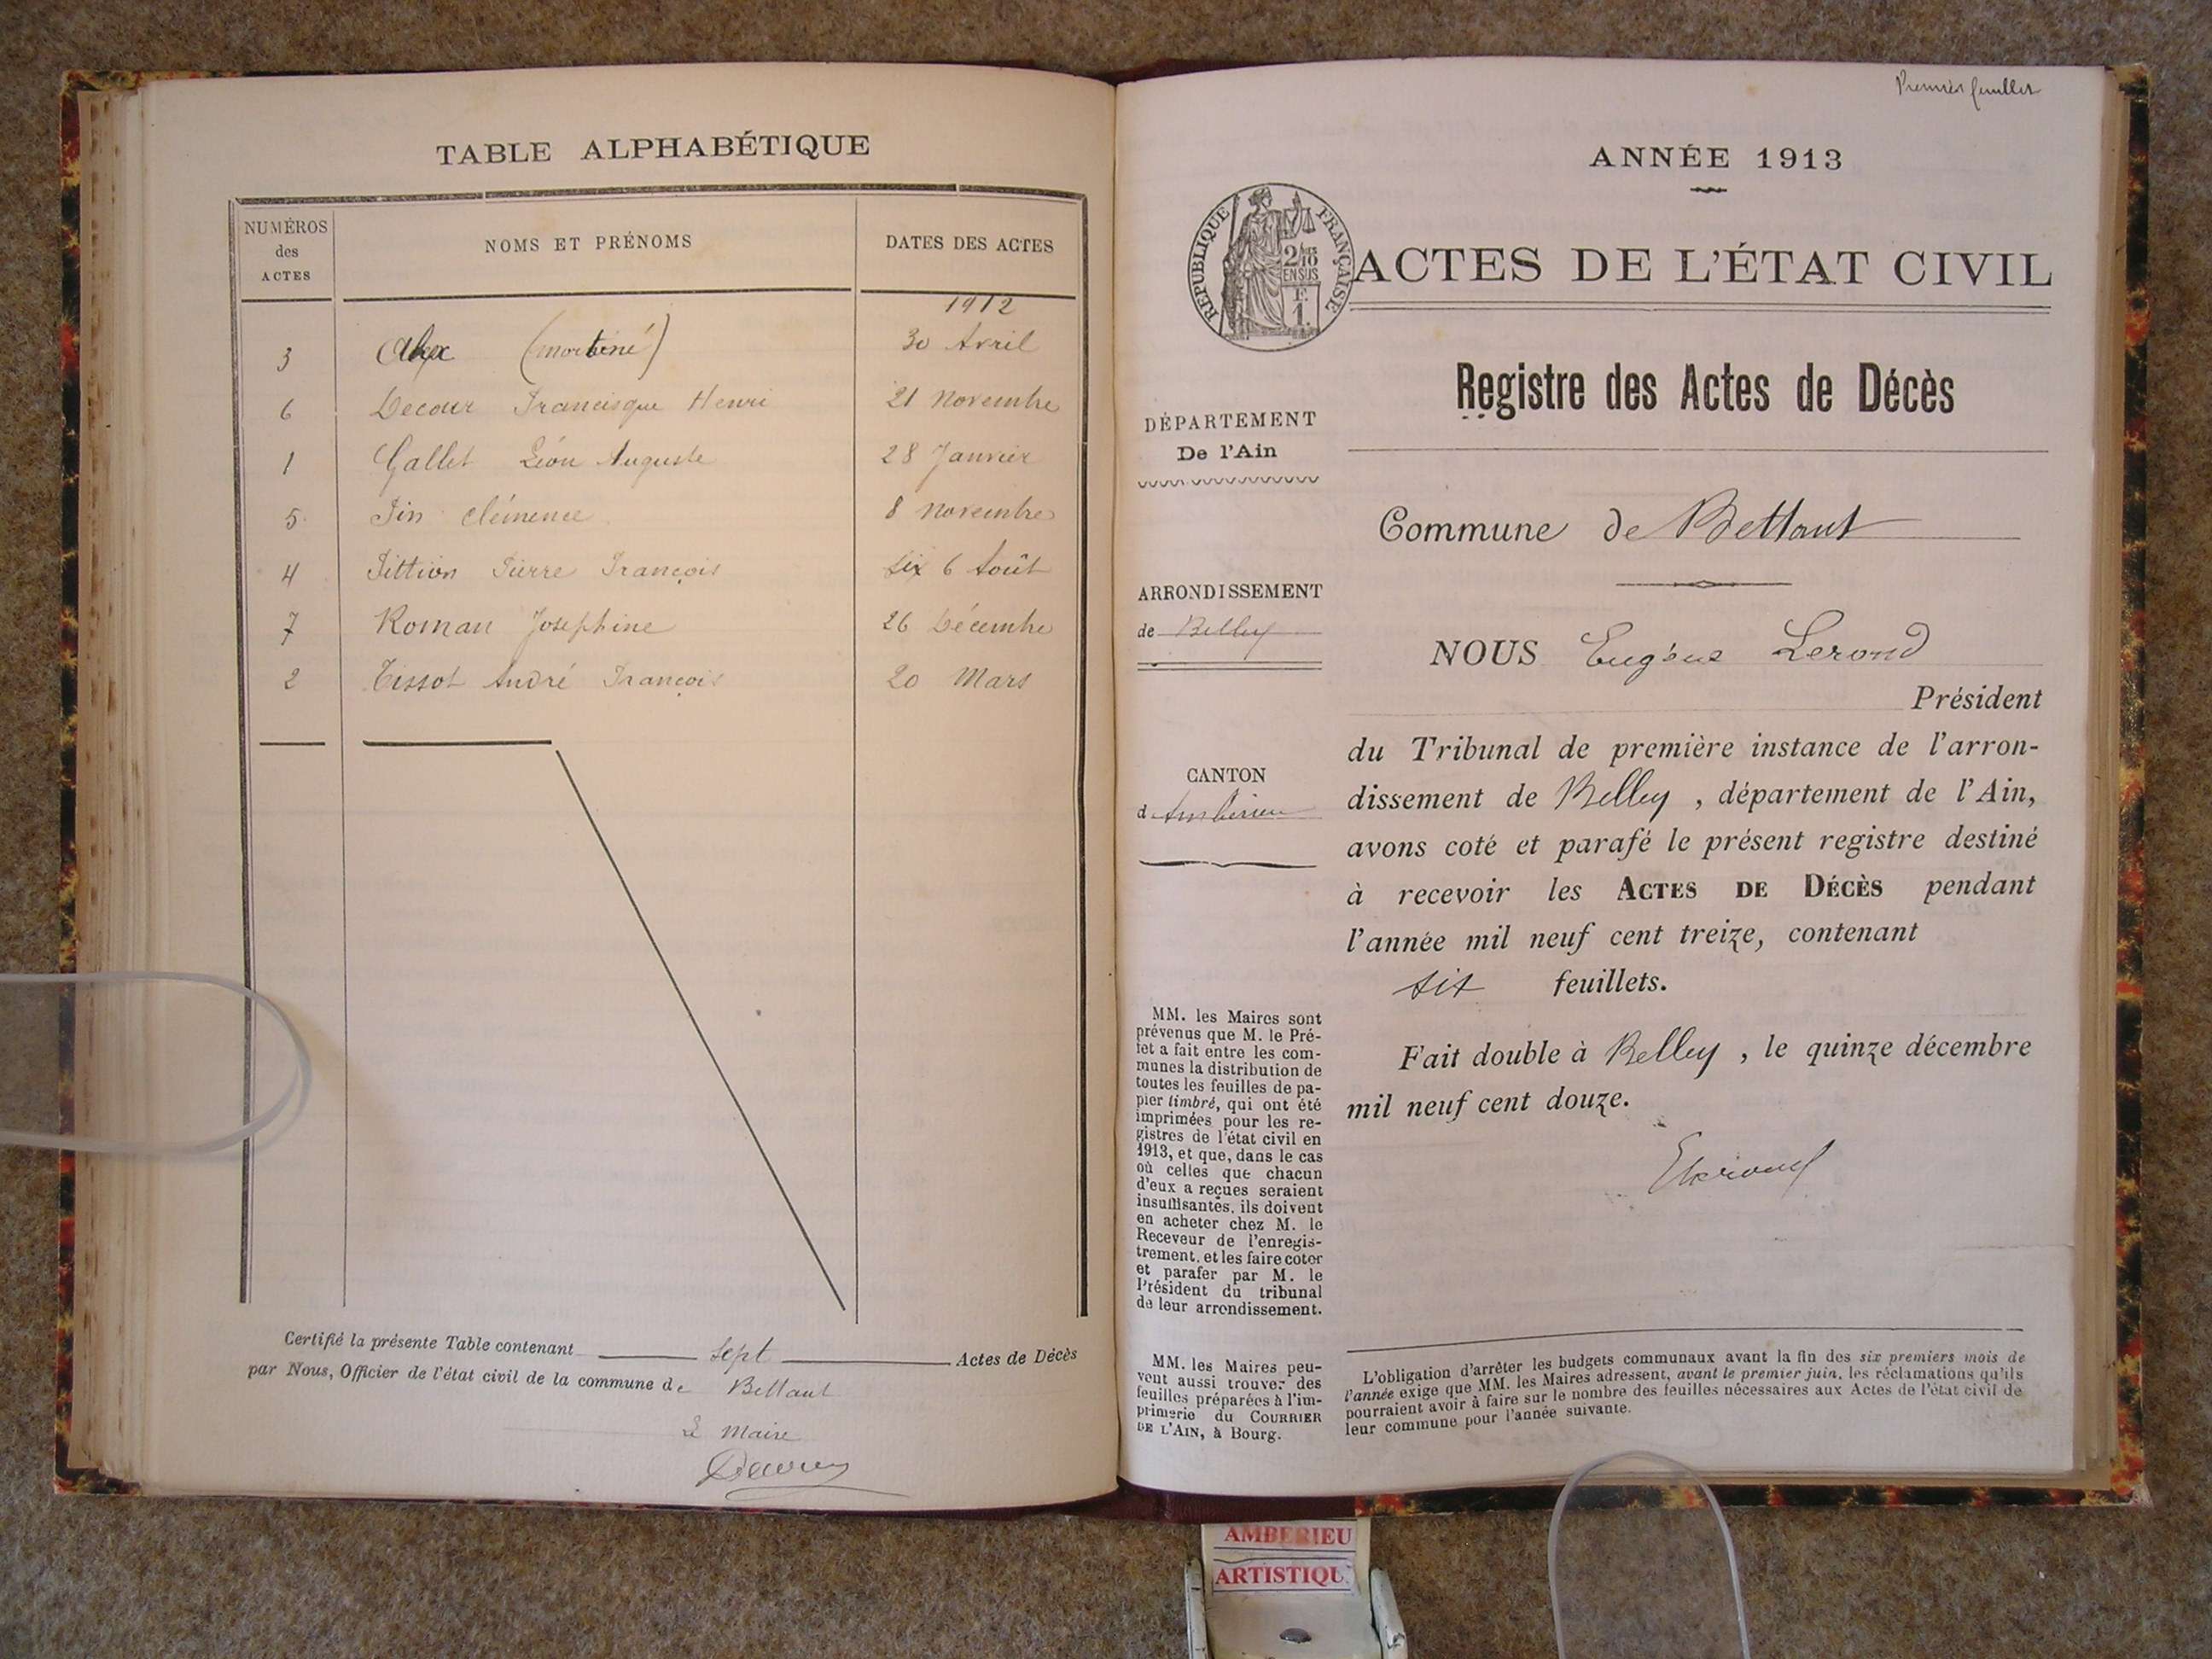 TABLE ALPHABÉTIQUE
NUMÉROS des ACTES
NOMS ET PRÉNOMS
DATES DES ACTES
1912
3 Alex (mort né) 30 Avril
6 Decour Francisque Henri 21 Novembre
1 Gallet Léon Auguste 28 Janvier
5 Pin Clémence 8 Novembre
4 Pittion Pierre François six 6 Août
7 Roman Joséphine 26 Décembre
2 Tissot André François 20 Mars
Certifié la présente Table contenant sept Actes de Décès
par Nous, Officier de l'état civil de la commune de Bettant
Le Maire
Premier feuillet
ANNÉE 1913
RÉPUBLIQUE FRANÇAISE
2/10 EN SUS
F.
1.
ACTES DE L'ÉTAT CIVIL
Registre des Actes de Décès
DÉPARTEMENT
De l'Ain
Commune de Bettant
ARRONDISSEMENT
de Belley
CANTON
d Ambérieu
NOUS Eugène Lerond
Président
du Tribunal de première instance de l'arron-
dissement de Belley, département de l'Ain,
avons coté et parafé le présent registre destiné
à recevoir les ACTES DE DÉCÈS pendant
l'année mil neuf cent treize, contenant
six feuillets.
Fait double à Belley, le quinze décembre
mil neuf cent douze.
ELerond
MM. les Maires sont
prévenus que M. le Pré-
fet a fait entre les com-
munes la distribution de
toutes les feuilles de pa-
pier timbré, qui ont été
imprimées pour les re-
gistres de l'état civil en
1913, et que, dans le cas
où celles que chacun
d'eux a reçues seraient
insuffisantes, ils doivent
en acheter chez M. le
Receveur de l'enregis-
trement, et les faire coter
et parafer par M. le
Président du tribunal
de leur arrondissement.
MM. les Maires peu-
vent aussi trouver des
feuilles préparées à l'im-
primerie du COURRIER
DE L'AIN, à Bourg.
L'obligation d'arrêter les budgets communaux avant la fin des six premiers mois de
l'année exige que MM. les Maires adressent, avant le premier juin, les réclamations qu'ils
pourraient avoir à faire sur le nombre des feuilles nécessaires aux Actes de l'état civil de
leur commune pour l'année suivante.
AMBERIEU
ARTISTIQU